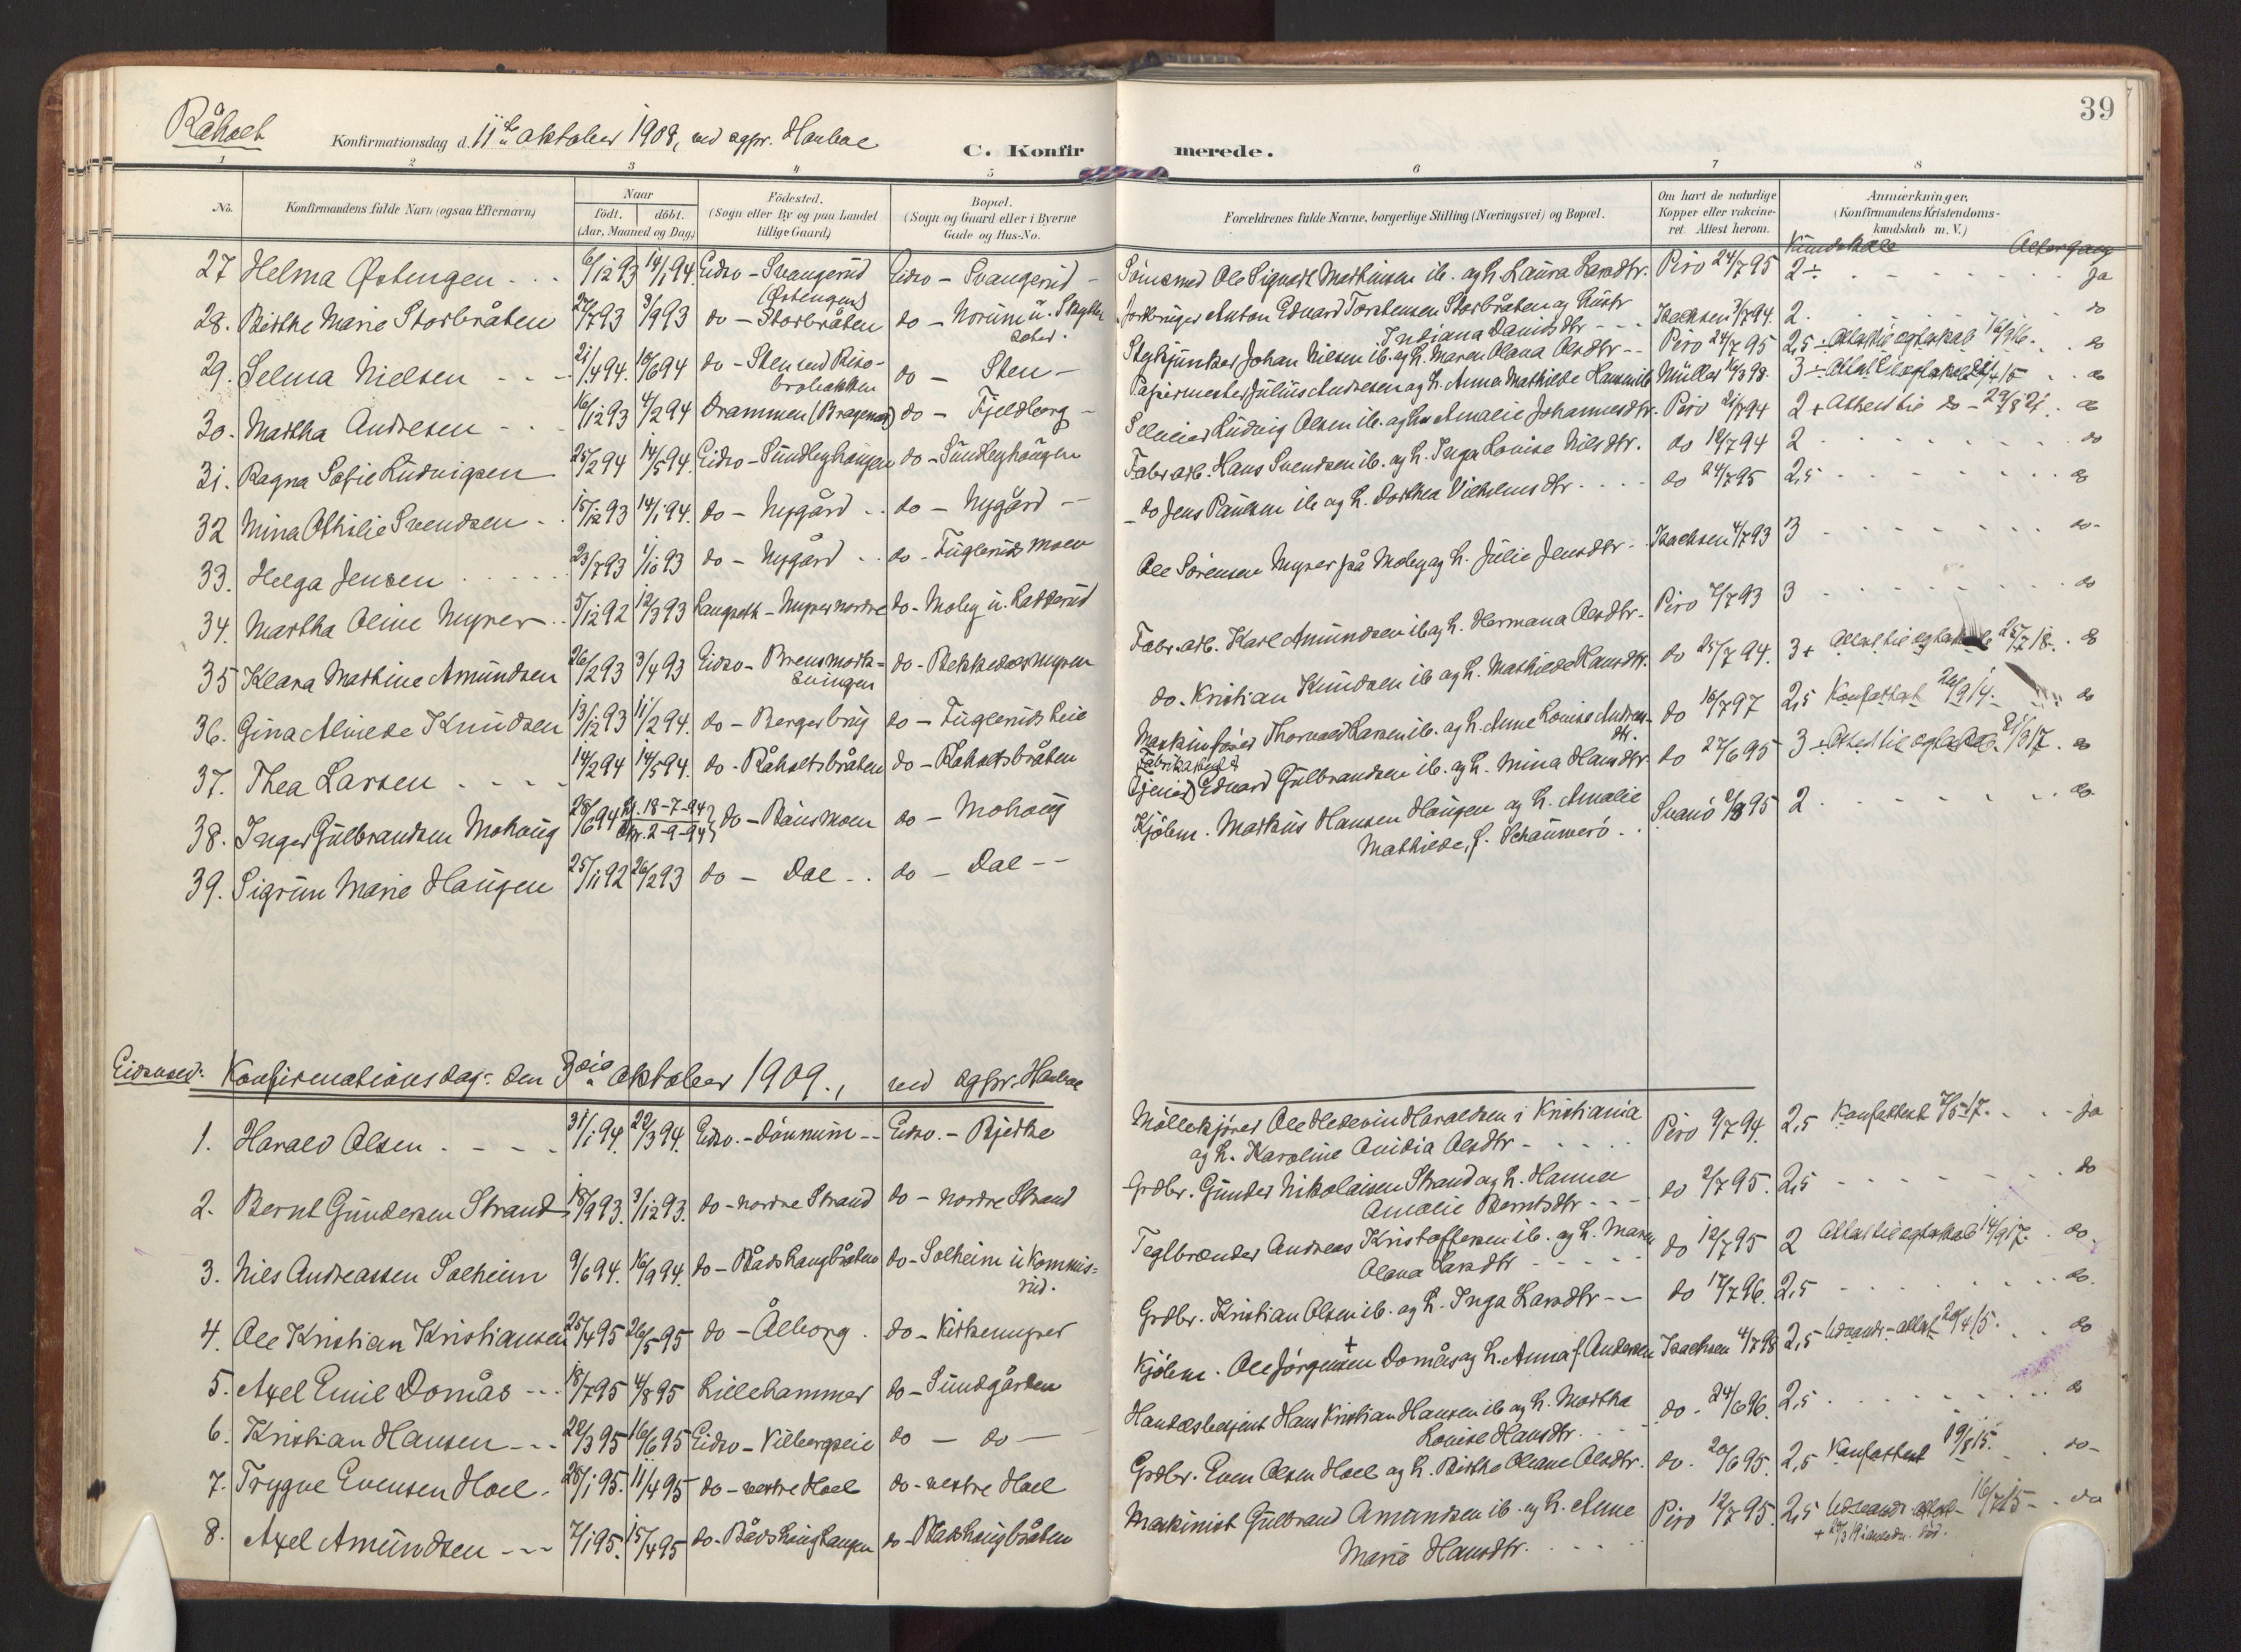 39
Råholt Konfirmationsdag d. 11te oktober 1908, ved sgpr.
C. Konfirmerede.
1 2 3 4 5 6 7 8
No. Konfirmandens fulde Navn (ogsaa Efternavn) Naar födt. döbt. (Aar, Maaned og Dag) Födested. (Sogn eller By og paa Landet tillige Gaard) Bopæl. (Sogn og Gaard eller i Byerne Gade og Hus-No. Forældrenes fulde Navne, borgerlige Stilling (Næringsvei) og Bopæl. Om havt de naturlige Kopper eller vakcineret. Attest herom. Anmærkninger. (Konfirmandens Kristendomskundskab m. V.)
Kundskab Altergang
27 Helma Østengen 6/12 93 14/1 94. Eidsv - Svangerud (Østengen) Eidsv - Svangerud Ole Sigvart Mathiesen ib. og h. Laura Larsdtr. Piro 24/7 95 2÷ ja
28. Birthe Marie Storbråten 27/7 93 3/9 93 do - Storbråten do - Norum u. Anton Edvard Torstensen Storbråten og hustr Indiana Danielsdtr Isachsen 7/94. 2. do
29. Selma Nielsen 21/4 94. 10/6 94 do - Sten do - Sten Johan Nielsen ib. og h. Maren Olava Olsdtr Piro 24/7 95 2,5 ÷ Attest til egteskab 16/9 16. do
30. Martha Andresen 16/12 93 4/2 94 Drammen (Bragernes) do - Fjeldborg Papirmester Julius Andresen og h. Anna Mathilde Hansen ib Müller 16/3 98. 3 ÷ Attest til egteskab 15 do
31. Ragna Sofie Ludvigsen 25/2 94 14/5 94. Eidsv - Sundbyhaugen do - Sundbyhaugen Ludvig Olsen ib. og h. Amalie Johannesdtr. Piro 21/7 94 2 + Attest til do - 29/8 21. do
32 Mina Othilie Svendsen 15/12 93 14/1 94. do - Nygård do - Nygård Fabr.arb. Hans Svendsen ib. og h. Inga Lovise Nilsdtr. do 12/7 94 2 do
33. Helga Jensen 23/7 93 1/10 93 do - Nygård do - Fuglerudsmoen do Jens Paulsen ib og h. Dorthea Vilhelmsdtr do 24/7 95 2,5 do
34. Martha Oline Nyrer 5/12 92 12/3 93 Langseth - Nyrer nordre do - Moby u. Ole Sörensen Nyrer på Moby og h. Julie Jensdtr Isachsen 4/7 93 3 do
35 Klara Mathine Amundsen 26/2 93 3/4 93 Eidsv - do - Fabr.arb. Karl Amundsen ib og h. Hermana Olsdtr. Piro 7/7 93 3 do
36. Gina Alvilde Knudsen 13/12 93 11/2 94. do - Bergerbrug do - Fuglerudseie do. Kristian Knudsen ib og h. Mathilde Hansdtr. do 25/7 94. 3+ Attest til egteskab 25/7 18. do
37. Thea Larsen 14/2 94 14/5 94. do - Råholtsbråten do - Råholtsbråten Maskinförer Thorvald Larsen ib. og h. Anne Lovise Andreasdtr. do 16/7 97 2,5 Konf.attest 26/9 14. do
38. Inger Gulbrandsen Mohaug 28/6 94 Hj. 18-7-94 Kfr. 2-9-94 do - Råusmoen do - Mohaug Fabrikarbeid Edvard Gulbrandsen ib. og h. Mina Hansdtr do 27/6 95 3 ÷ Attest til egteskab 17. do
39. Sigrun Marie Haugen 25/11 92 26/2 93 do - Dal do - Dal Kjölem. Markus Hansen Haugen og h. Amalie Mathilde, f. Svanö 2/8 95 2 do
Eidsvold. Konfirmationsdag: den 3die oktober 1909., ved sgpr.
1. Harald Olsen 31/1 94. 22/3 94. Eidsv. - Dönnum Eidsv. - Bjerke Möllekjörer Ole Hedevin Haraldsen i Kristiania og h. Karoline Olsdtr Piro 9/7 94. 2,5 Konf.attest 7/5 17. ja
2. Bernt Gundersen Strand 18/9 93. 3/12 93. do - nordre Strand do - nordre Strand Grdbr. Gunder Nikolaisen Strand og h. Hanna Amalie Berntsdtr do 2/7 95. 2,5 do
3. Nils Andreassen Solheim 9/6 94. 16/9 94. do - Bådshaugbråten do - Solheim u Kommisrud. Teglbrænder Andreas Kristoffersen ib. og h. Maren Olava Larsdtr do 12/7 95 2 Attest til egteskab 14/9 17. do
4. Ole Kristian Kristiansen 25/4 95 26/5 95 do - Ålborg. do - Kirkenyrer Grdbr. Kristian Olsen ib. og h. Inga Larsdtr do 17/7 96. 2,5 do
5. Axel Emil Domås 18/7 95 4/8 95 Lillehammer do - Sundgården Kjölem. Ole Jörgensen Domås og h. Anna f. Andersen Isachsen 4/7 98 2,5 Udvandr.-attest 20/4 15. do
6. Kristian Hansen 22/3 95 16/6 95 Eidsv - Vilbergseie do - do - Handelsbetjent Hans Kristian Hansen ib og h. Martha Lovise Hansdtr. do - 24/6 96. 2,5 do
7. Trygve Evensen Hoel 28/1 95. 11/4 95 do - vestre Hoel do - vestre Hoel Grdbr. Even Olsen Hoel og h. Birthe Oleane Olsdtr. do. 20/6 95. 2,5 Konfattest 19/8 15. do
8. Axel Amundsen 7/1 95. 15/4 95 do - Bådshaughaugen do - Bådshaugbråten Maskinist Gulbrand Amundsen ib. og h. Anne Marie Hansdtr. Piro 12/7 95. 2,5 Udvandr.attest 16/7 15 do